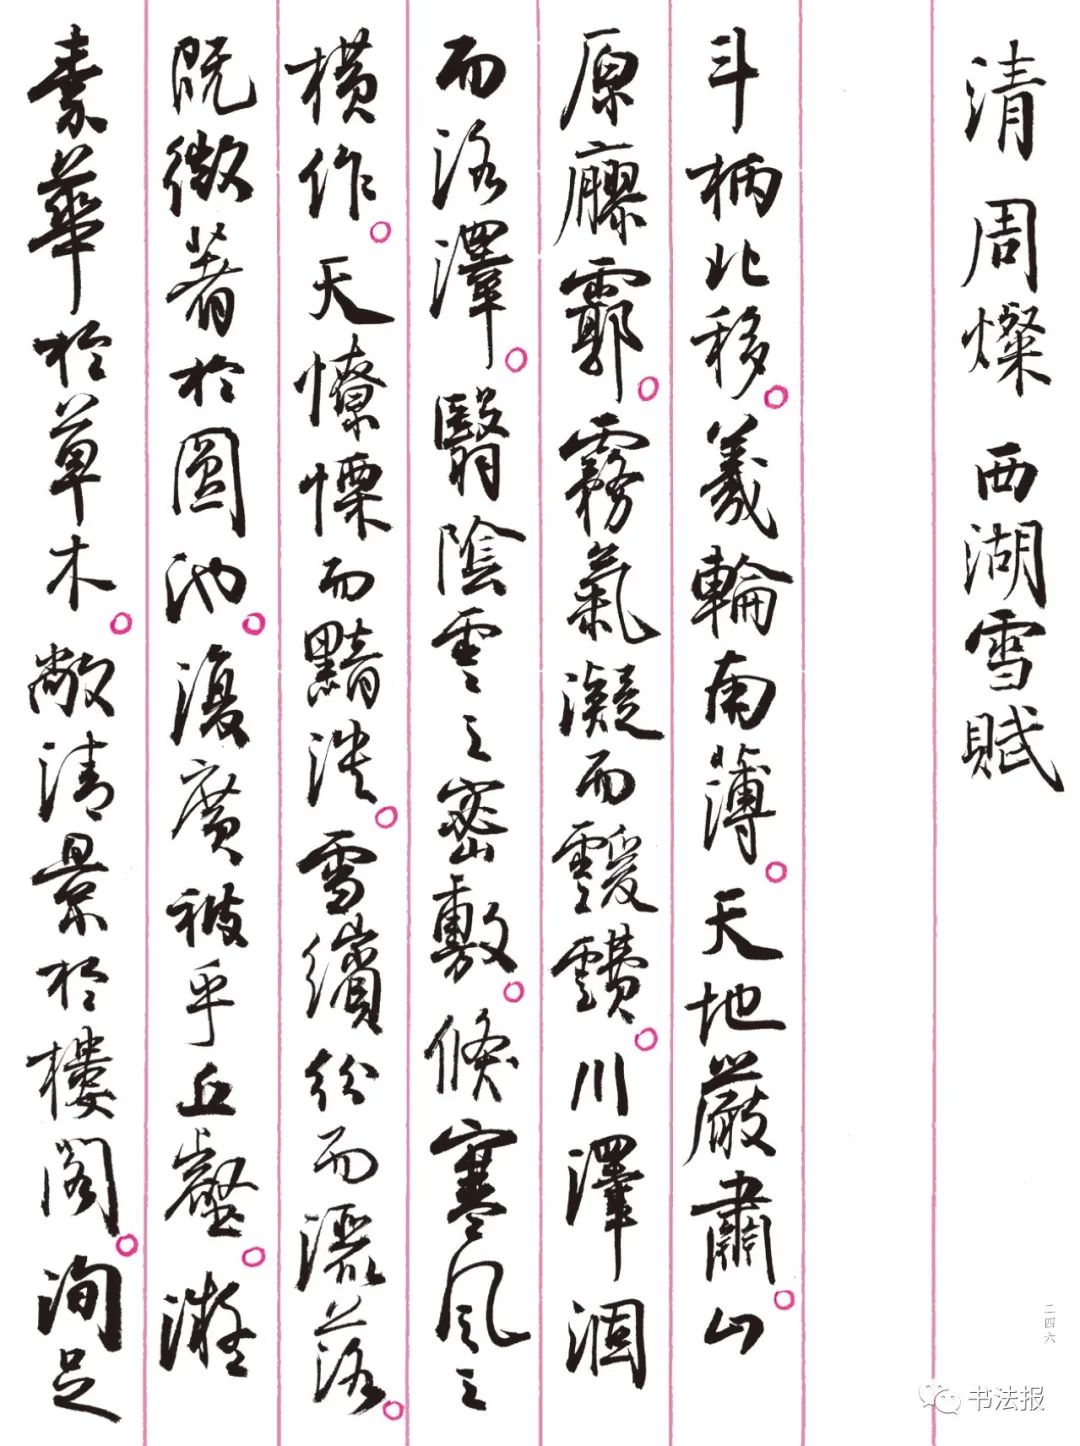 清 周燦 西湖雪賦
斗柄北移。羲輪南薄。天地嚴肅。山
原廫霩。霧氣凝而靉靅。川澤涸
而洛澤。翳陰雲之密敷。倏寒風之
橫作。天憭慄而黯淡。雪繽紛而灑落。
既微著於圓池。復廣被乎丘壑。凝
素華於草木。敞清景於樓閣。洵足
二四六
书法报